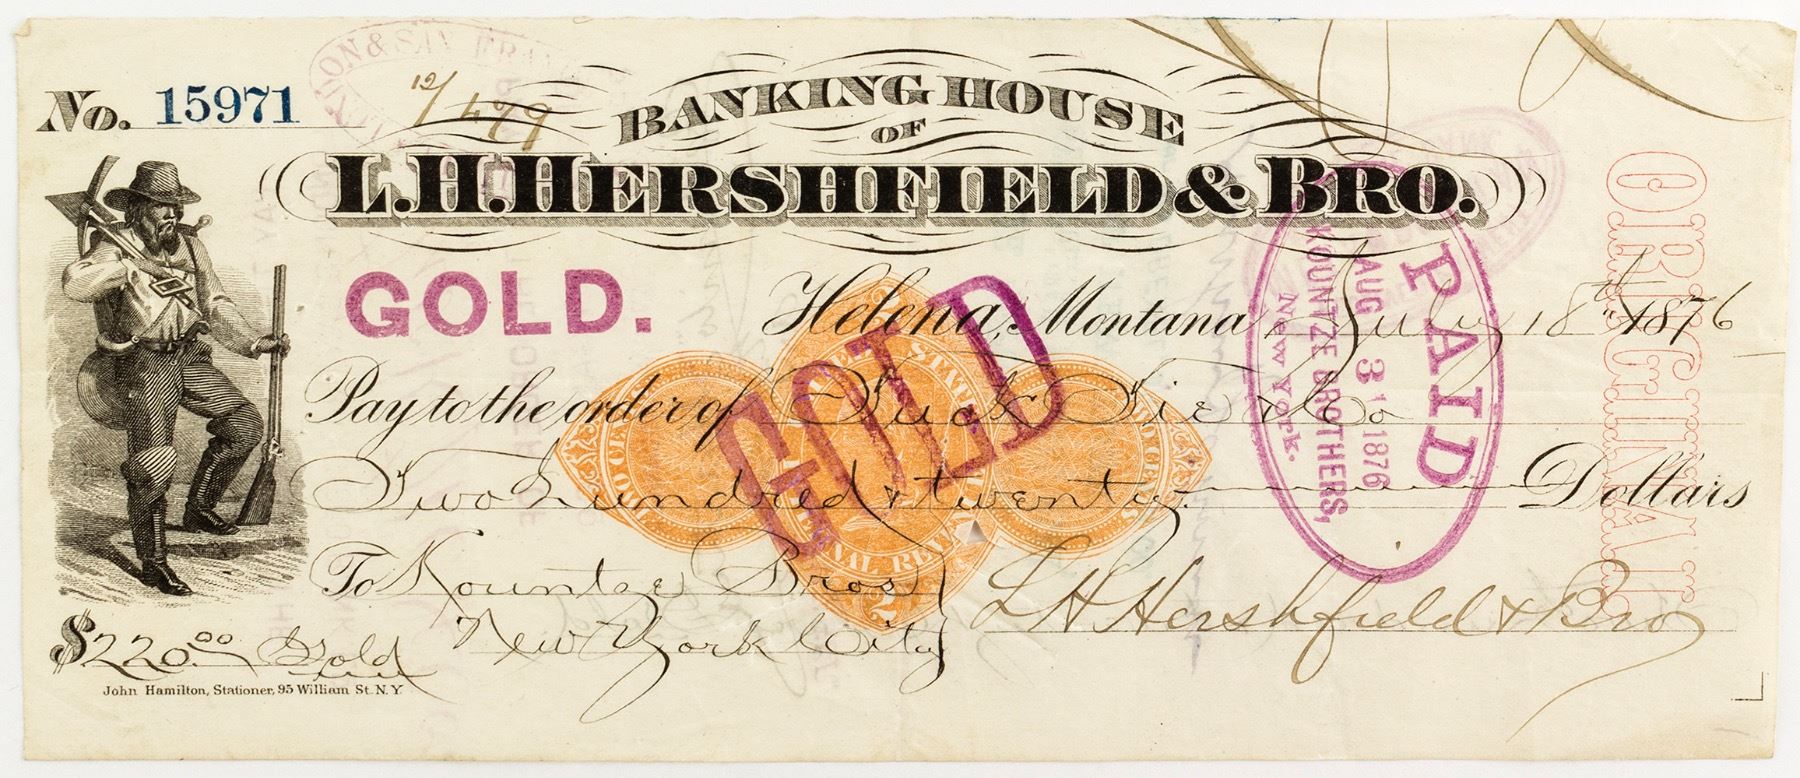 No. 15971
12/499
BANKING HOUSE
OF
L.H. HERSHFIELD & BRO.
GOLD.
GOLD
Helena, Montana, July 18th 1876
Pay to the order of Tuck Tie & Co
Two hundred & twenty Dollars
To Kountze Bros
New York City
L H Hershfield & Bro
$220.00 Gold
John Hamilton, Stationer, 95 William St. N.Y.
PAID
AUG 31 1876
KOUNTZE BROTHERS,
New York.
ORIGINAL